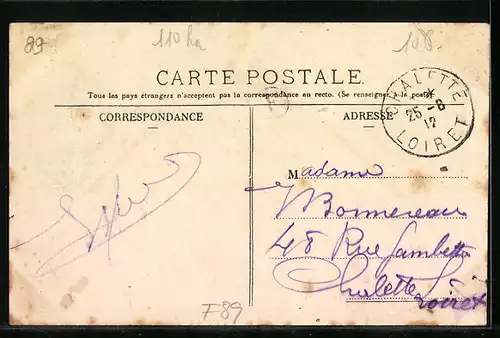 89 110 ha 108
CARTE POSTALE.
Tous les pays étrangers n'acceptent pas la correspondance au recto. (Se renseigner à la poste)
CORRESPONDANCE
ADRESSE
CHALETTE
*
25-8
12
LOIRET
Madame
Bonnereau
48 Rue Gambetta
Chalette
Loiret
F89